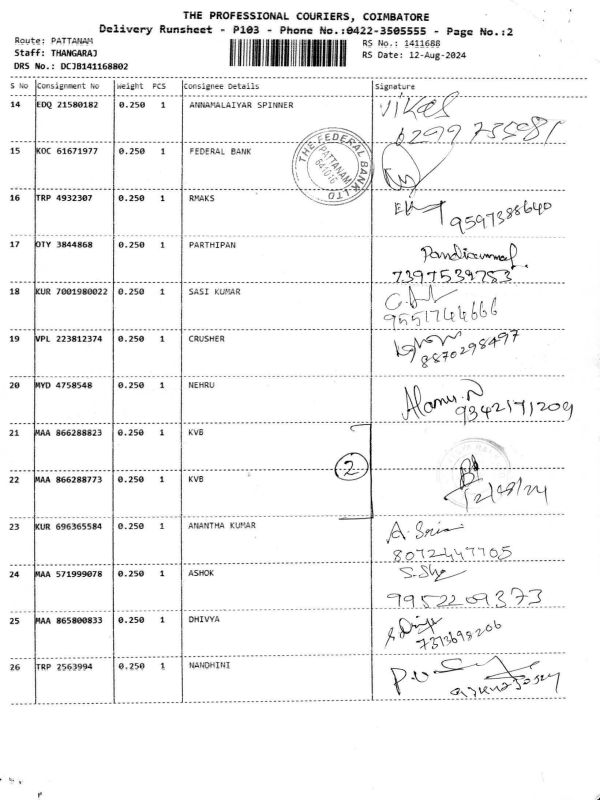 THE PROFESSIONAL COURIERS, COIMBATORE
Delivery Runsheet - P103 - Phone No.:0422-3505555 - Page No.:2
Route: PATTANAM
RS No.: 1411688
Staff: THANGARAJ
RS Date: 12-Aug-2024
DRS No.: DCJB141168802
S No Consignment No Weight PCS Consignee Details Signature
14 EDQ 21580182 0.250 1 ANNAMALAIYAR SPINNER Vikas
6299735981
15 KOC 61671977 0.250 1 FEDERAL BANK
THE FEDERAL BANK LTD
PATTANAM
641016
16 TRP 4932307 0.250 1 RMAKS
9597388640
17 OTY 3844868 0.250 1 PARTHIPAN Pandiammal
7397539783
18 KUR 7001980022 0.250 1 SASI KUMAR
9551744666
19 VPL 223812374 0.250 1 CRUSHER
8870298497
20 MYD 4758548 0.250 1 NEHRU Alamu.N
9342171209
21 MAA 866288823 0.250 1 KVB
2
22 MAA 866288773 0.250 1 KVB
12/08/24
23 KUR 696365584 0.250 1 ANANTHA KUMAR A.
8072447705
24 MAA 571999078 0.250 1 ASHOK
9952209373
25 MAA 865800833 0.250 1 DHIVYA
7313698206
26 TRP 2563994 0.250 1 NANDHINI